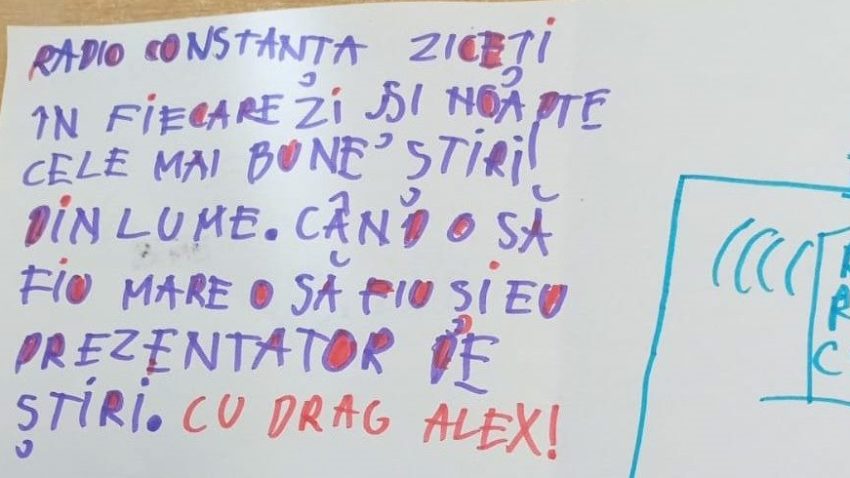 RADIO CONSTANȚA ZICEȚI
ÎN FIECARE ZI ȘI NOAPTE
CELE MAI BUNE ȘTIRI
DIN LUME. CÂND O SĂ
FIU MARE O SĂ FIU ȘI EU
PREZENTATOR DE
ȘTIRI. CU DRAG ALEX!
R
R
C